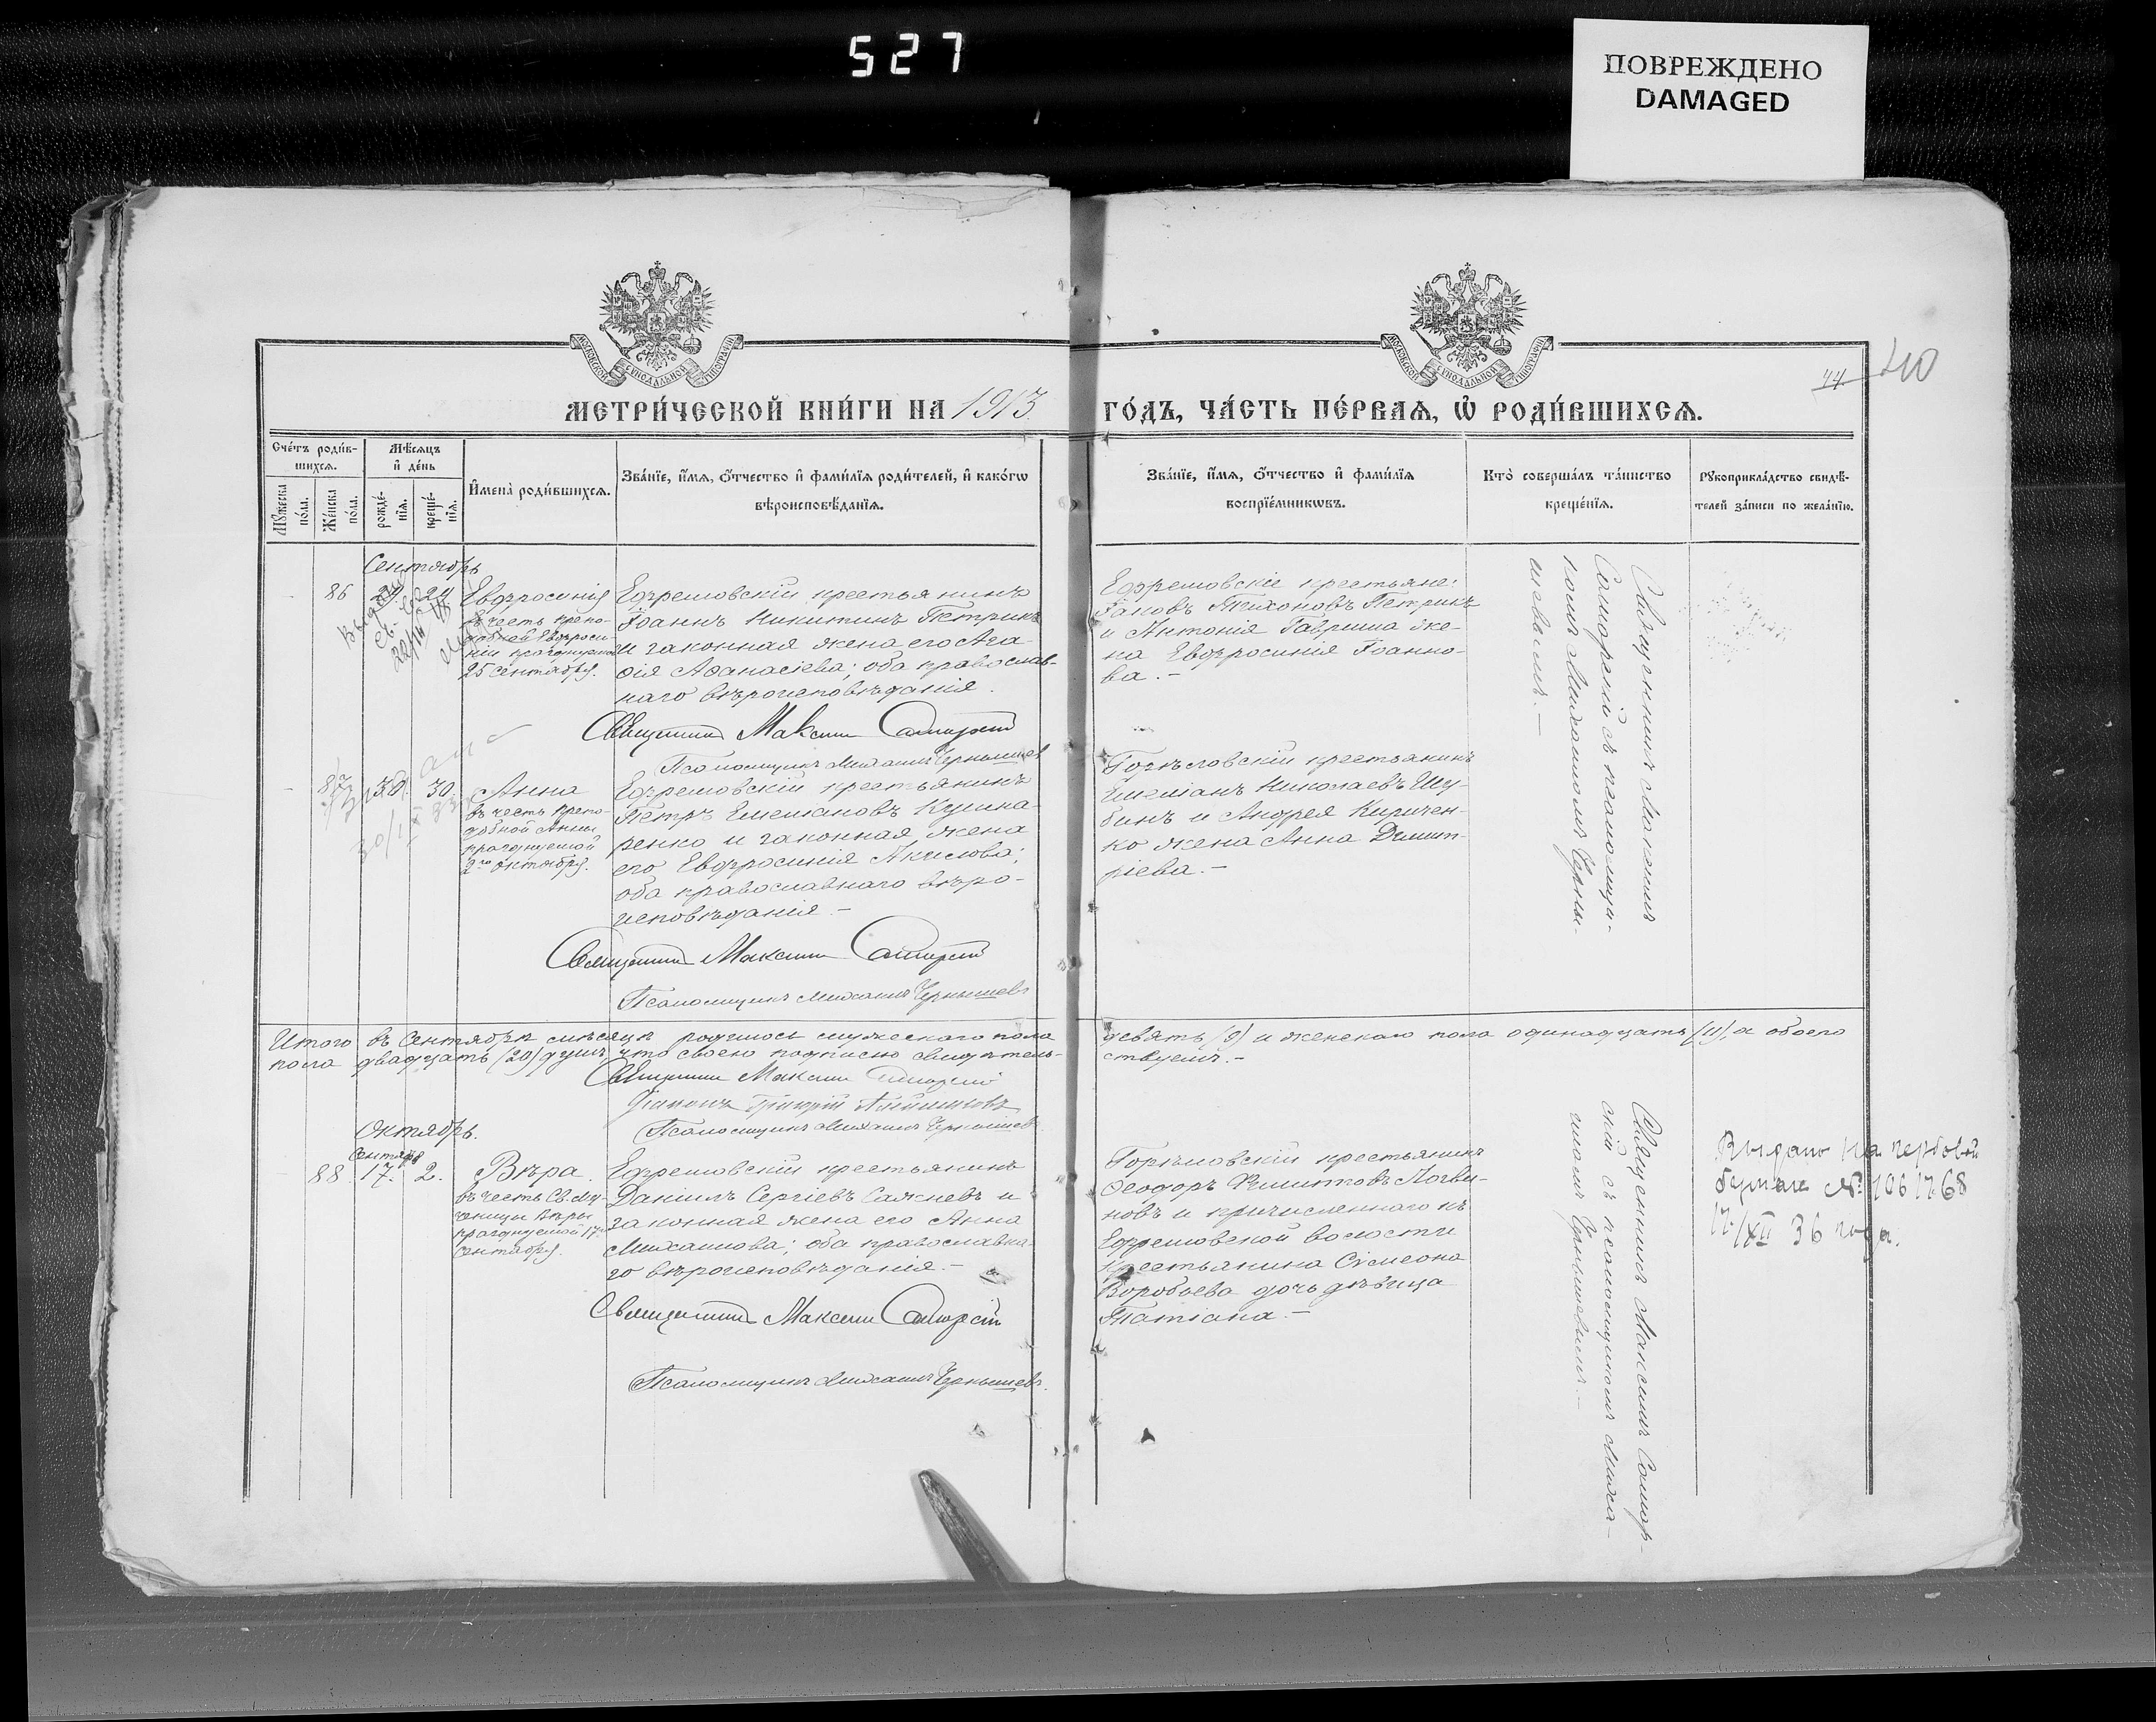 527
ПОВРЕЖДЕНО
DAMAGED
МОСКОВСКОЙ СѴНОДАЛЬНОЙ ТИПОГРАФІИ
МОСКОВСКОЙ СѴНОДАЛЬНОЙ ТИПОГРАФІИ
44 40
МЕТРИ́ЧЕСКОЙ КНИ́ГИ НА 1913 ГО́ДЪ, ЧА́СТЬ ПЕ́РВАѦ, Ѡ҆ РОДИ́ВШИХСѦ.
Сче́тъ роди́в-
шихсѧ.
Мꙋ́жеска по́ла.
Же́нска по́ла.
Мѣ́сѧцъ
и҆ де́нь
рожде́-
нїѧ.
креще́-
нїѧ.
И҆мена̀ роди́вшихсѧ.
Зва́нїе, и҆́мѧ, ѻ҆́тчество и҆ фами́лїѧ роди́телей, и҆ како́гѡ
вѣроисповѣ́данїѧ.
Зва́нїе, и҆́мѧ, ѻ҆́тчество и҆ фами́лїѧ
воспрїе́мникѡвъ.
Кто̀ соверша́лъ та́инство
креще́нїѧ.
Рꙋкоприкла́дство свидѣ́-
телей за́писи по жела́нїю.
Сентябрь
86 24 24
Евфросинія
въ честь препо-
добной Евфроси-
ніи празднуемой
25 Сентября.
Ефремовскій крестьянинъ
Іоаннъ Никитинъ Петрикъ
и законная жена его Ага-
ѳія Аѳанасіева; оба православ-
наго вѣроисповѣданія.
Священникъ Максим Саморскій
Псаломщикъ Михаилъ Чернышевъ
Ефремовскіе крестьяне:
Іаковъ Тихоновъ Петрикъ
и Антонія Гавриша же-
на Евфросинія Іоанно-
ва.-
Священникъ Максимъ
Саморскій съ псаломщи-
комъ Михаиломъ Черны-
шевымъ.-
87 30 30.
Анна
въ честь препо-
добной Анны
празднуемой
2го октября.
Ефремовскій крестьянинъ
Петръ Емельяновъ Кушна-
ренко и законная жена
его Евфросинія Акилова;
оба православнаго вѣро-
исповѣданія.-
Священникъ Максим Саморскій
Псаломщикъ Михаилъ Чернышевъ
Горѣловскій крестьянинъ
Емеліанъ Николаевъ Шу-
бинъ и Андрея Киричен-
ко жена Анна Димит-
ріева.-
Итого въ Сентябрѣ мѣсяцѣ родилось мужескаго пола девять (9) и женскаго пола одинадцать (11), а обоего
пола двадцать (20) душъ, что своею подписью свидѣтель-ствуемъ.-
Священникъ Максим Саморскій
Діаконъ Григорій
Псаломщикъ Михаилъ Чернышевъ
Октябрь.
Сентября
88 17. 2.
Вѣра.
въ честь Св. му-
ченицы Вѣры
празднуемой 17го
сентября.
Ефремовскій крестьянинъ
Даніилъ Сергіевъ Сажневъ и
законная жена его Анна
Михаилова; оба православна-
го вѣроисповѣданія.-
Священникъ Максим Саморскій
Псаломщикъ Михаилъ Чернышевъ.
Горѣловскій крестьянинъ
Ѳеодоръ Филиповъ Логви-
новъ и причисленнаго къ
Ефремовской волости
крестьянина Сімеона
Воробьева дочь дѣвица
Татіана.-
Священникъ Максимъ Самор-
скій съ псаломщикомъ Михаи-
ломъ Чернышевымъ.-
Выдано на гербовой
бумаге № 1061768
17/XII 36 года.